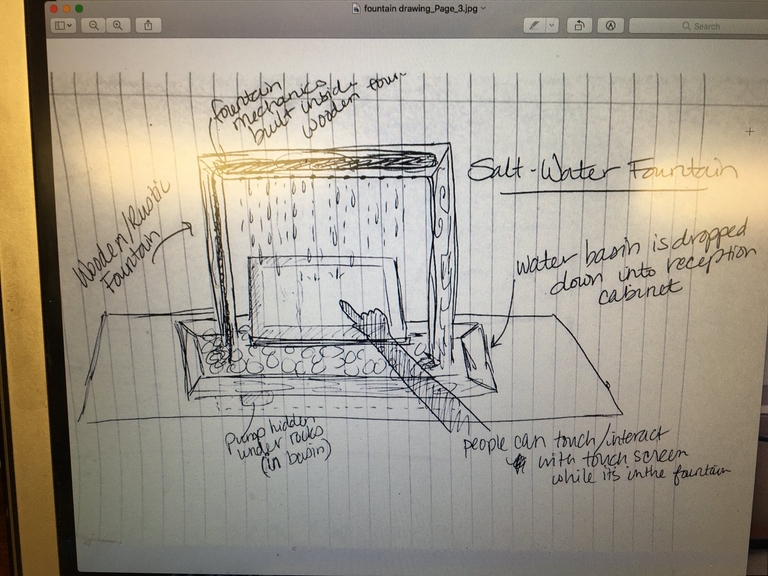 fountain drawing_Page_3.jpg
Search
fountain
mechanics
built inside
wooden
Salt-Water Fountain
Wooden/Rustic
Fountain
Water basin is dropped
down into reception
cabinet
Pump hidden
under rocks
(in basin)
people can touch/interact
with touch screen
while its in the fountain